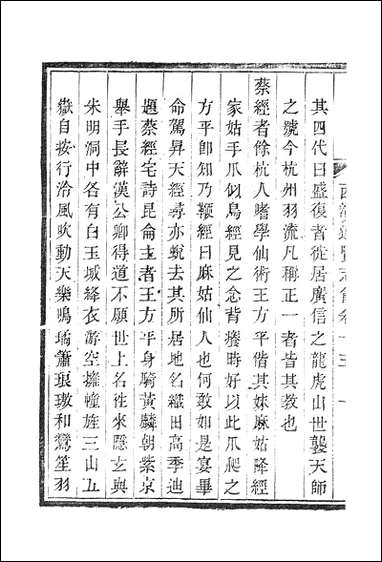 其四代曰盛復者徙居廣信之龍虎山世襲天師
之號今杭州羽流凡稱正一者皆其教也
蔡經者餘杭人嗜學仙術王方平偕其妹麻姑降經
家姑手爪似鳥經見之念背癢時好以此爪爬之
方平卽知乃鞭經曰麻姑仙人也何敢如是宴畢
命駕昇天經尋亦蛻去其所居地名織田高季迪
題蔡經宅詩昆侖主者王方平身騎黃麟朝紫京
舉手長辭漢公卿得道不願世上名往來隱玄與
朱明洞中各有白玉城絳衣游空擁幢旌三山五
嶽自按行泠風吹動天樂鳴璚簫琅璈和鸞笙羽